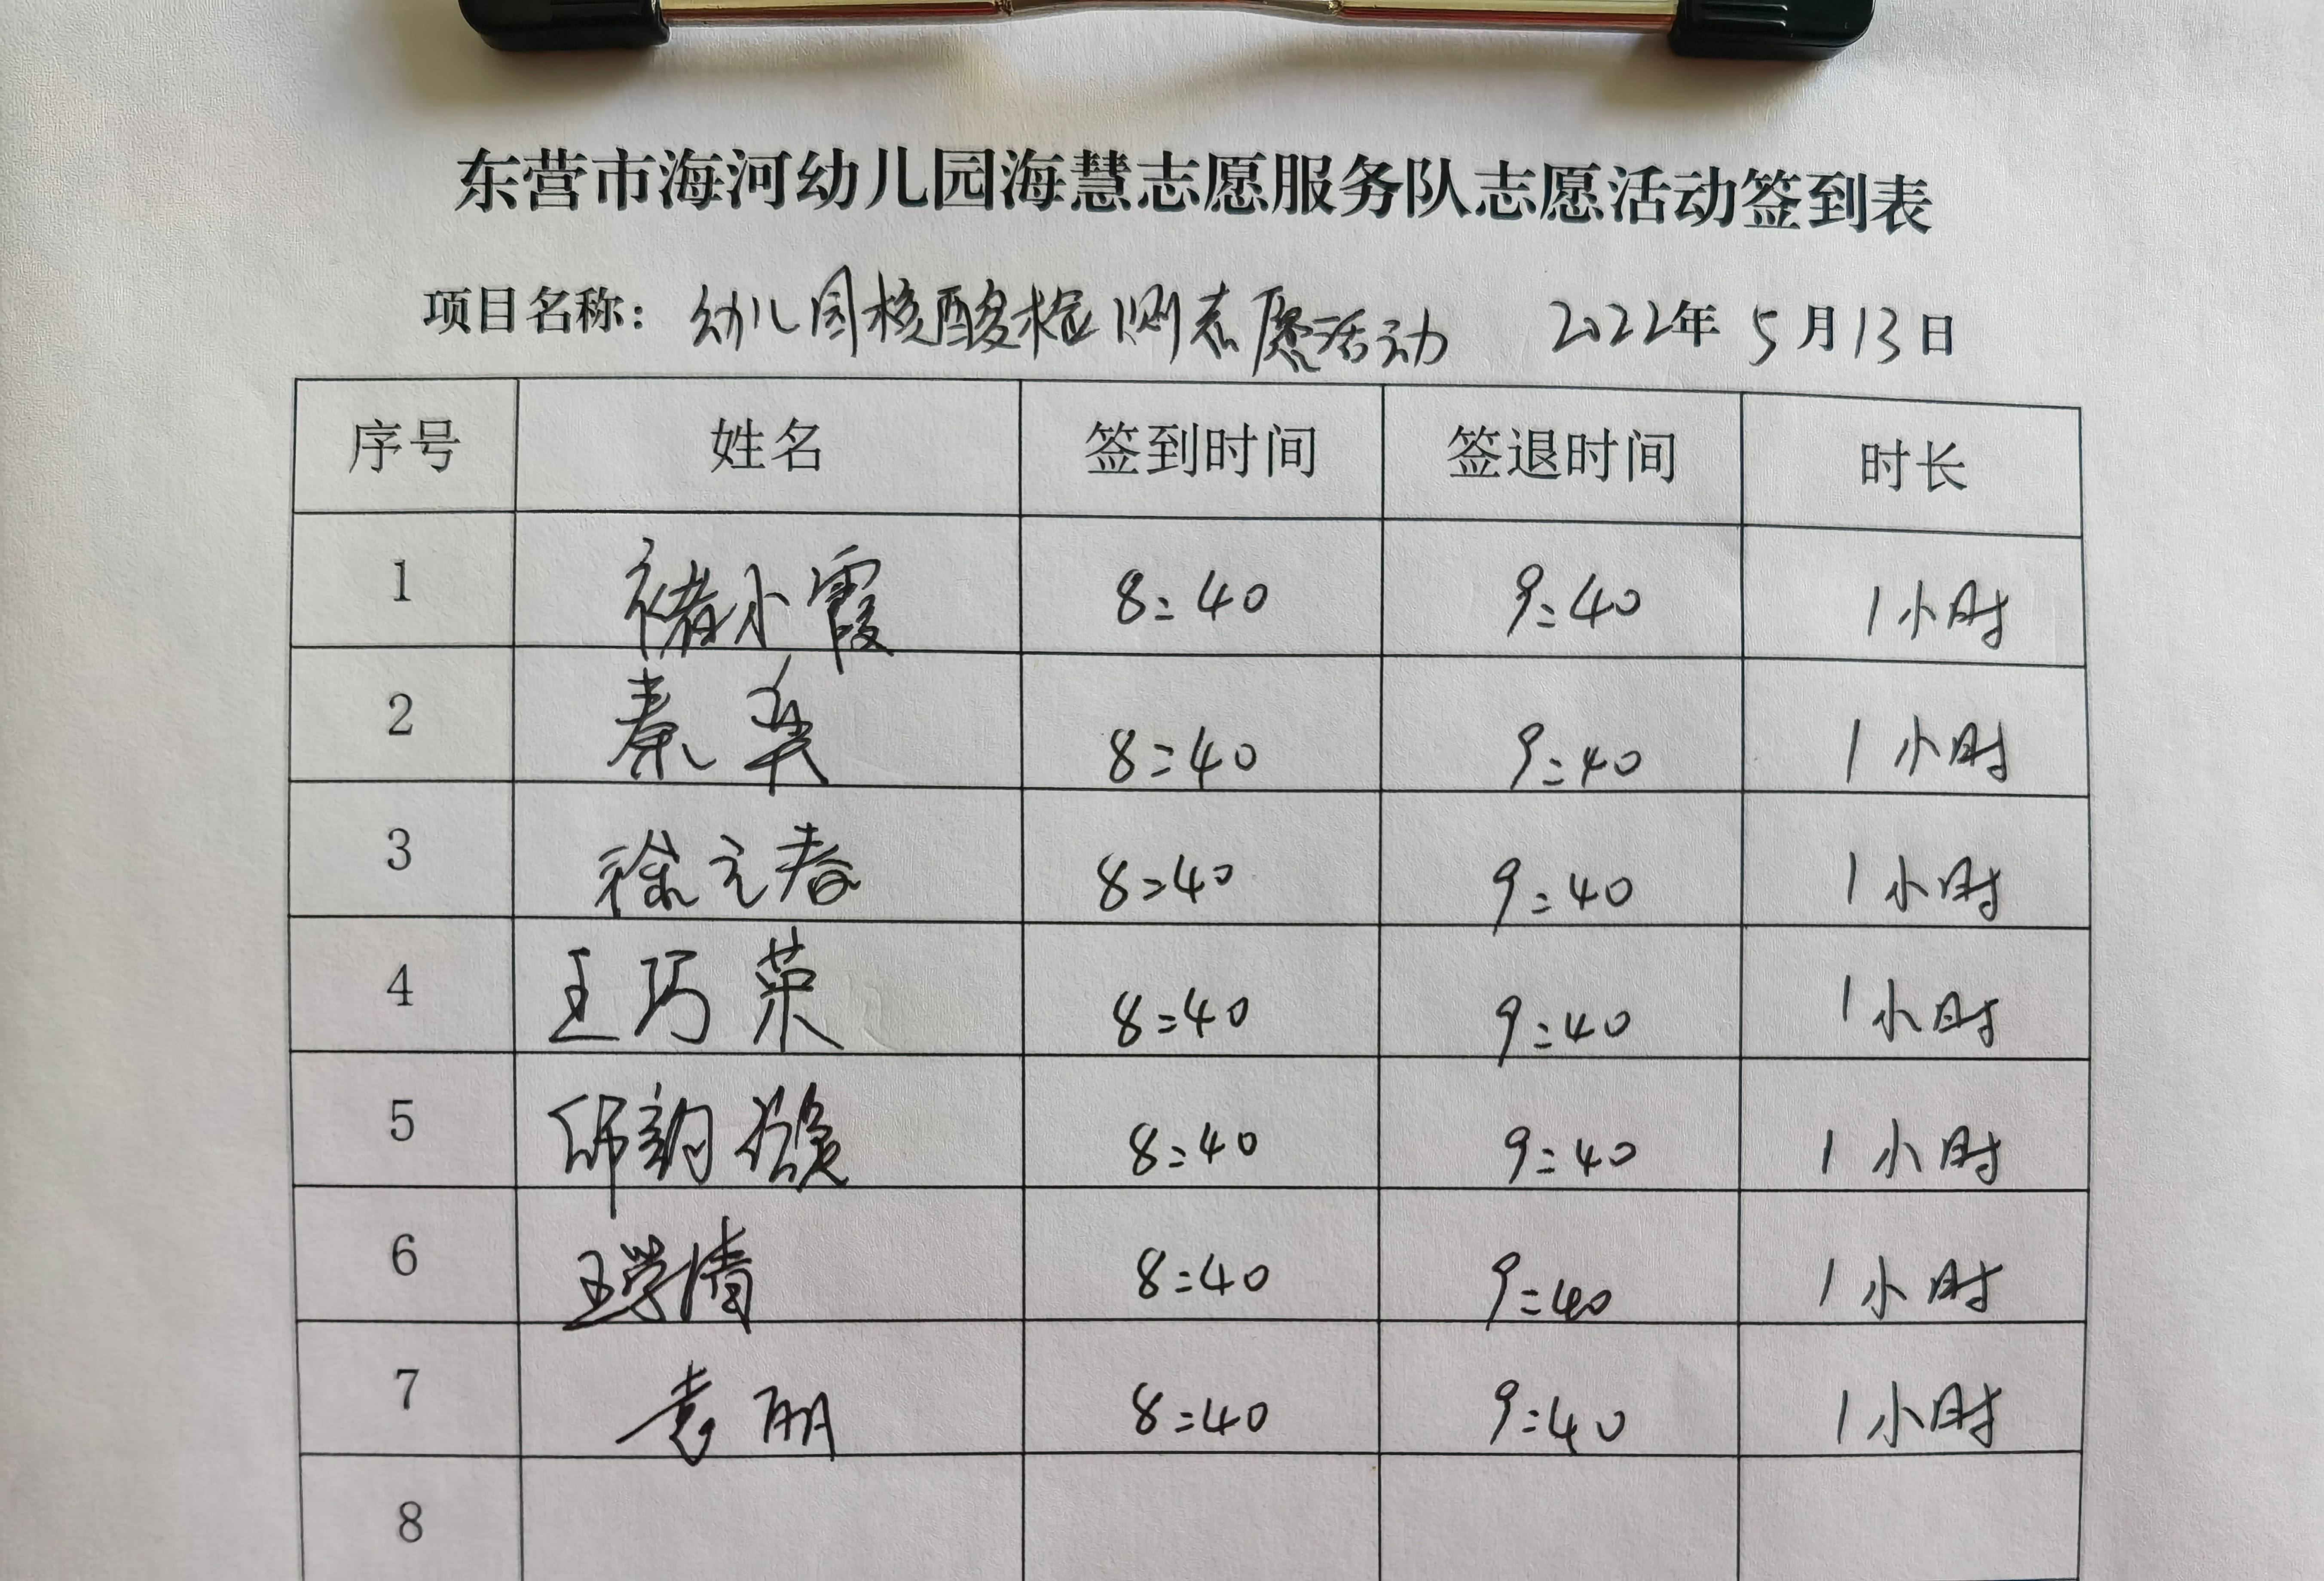 东营市海河幼儿园海慧志愿服务队志愿活动签到表
项目名称：幼儿园核酸检测志愿活动 2022年5月13日
序号 姓名 签到时间 签退时间 时长
1 褚小霞 8:40 9:40 1小时
2 秦 8:40 9:40 1小时
3 徐元春 8:40 9:40 1小时
4 王巧荣 8:40 9:40 1小时
5 8:40 9:40 1小时
6 王学清 8:40 9:40 1小时
7 袁丽 8:40 9:40 1小时
8